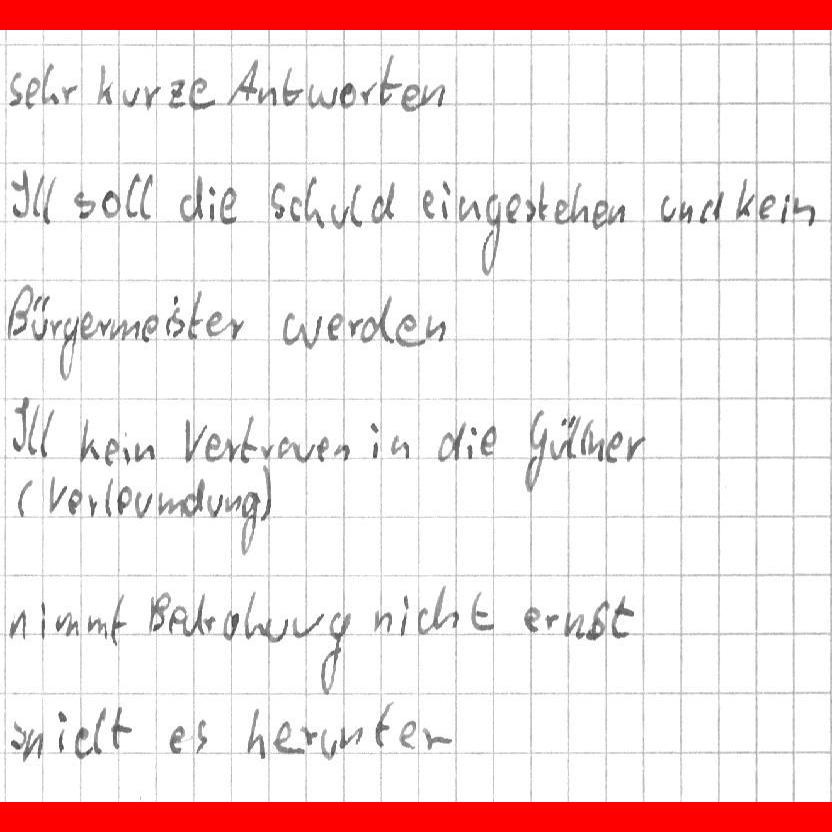 sehr kurze Antworten
Ill soll die Schuld eingestehen und kein
Bürgermeister werden
Ill kein Vertrauen in die Güllner
(Verleumdung)
nimmt Bedrohung nicht ernst
spielt es herunter